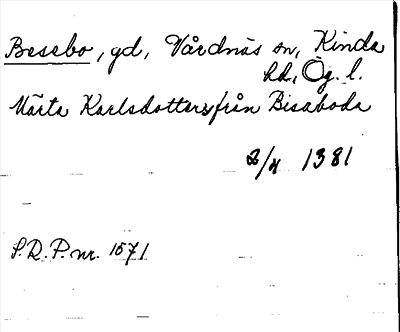 Besebo, gd, Vårdnäs sn, Kinda
hd, Ög. l.
Märta Karlsdotters från Bisaboda
2/4 1381
S.R.P. nr. 1571